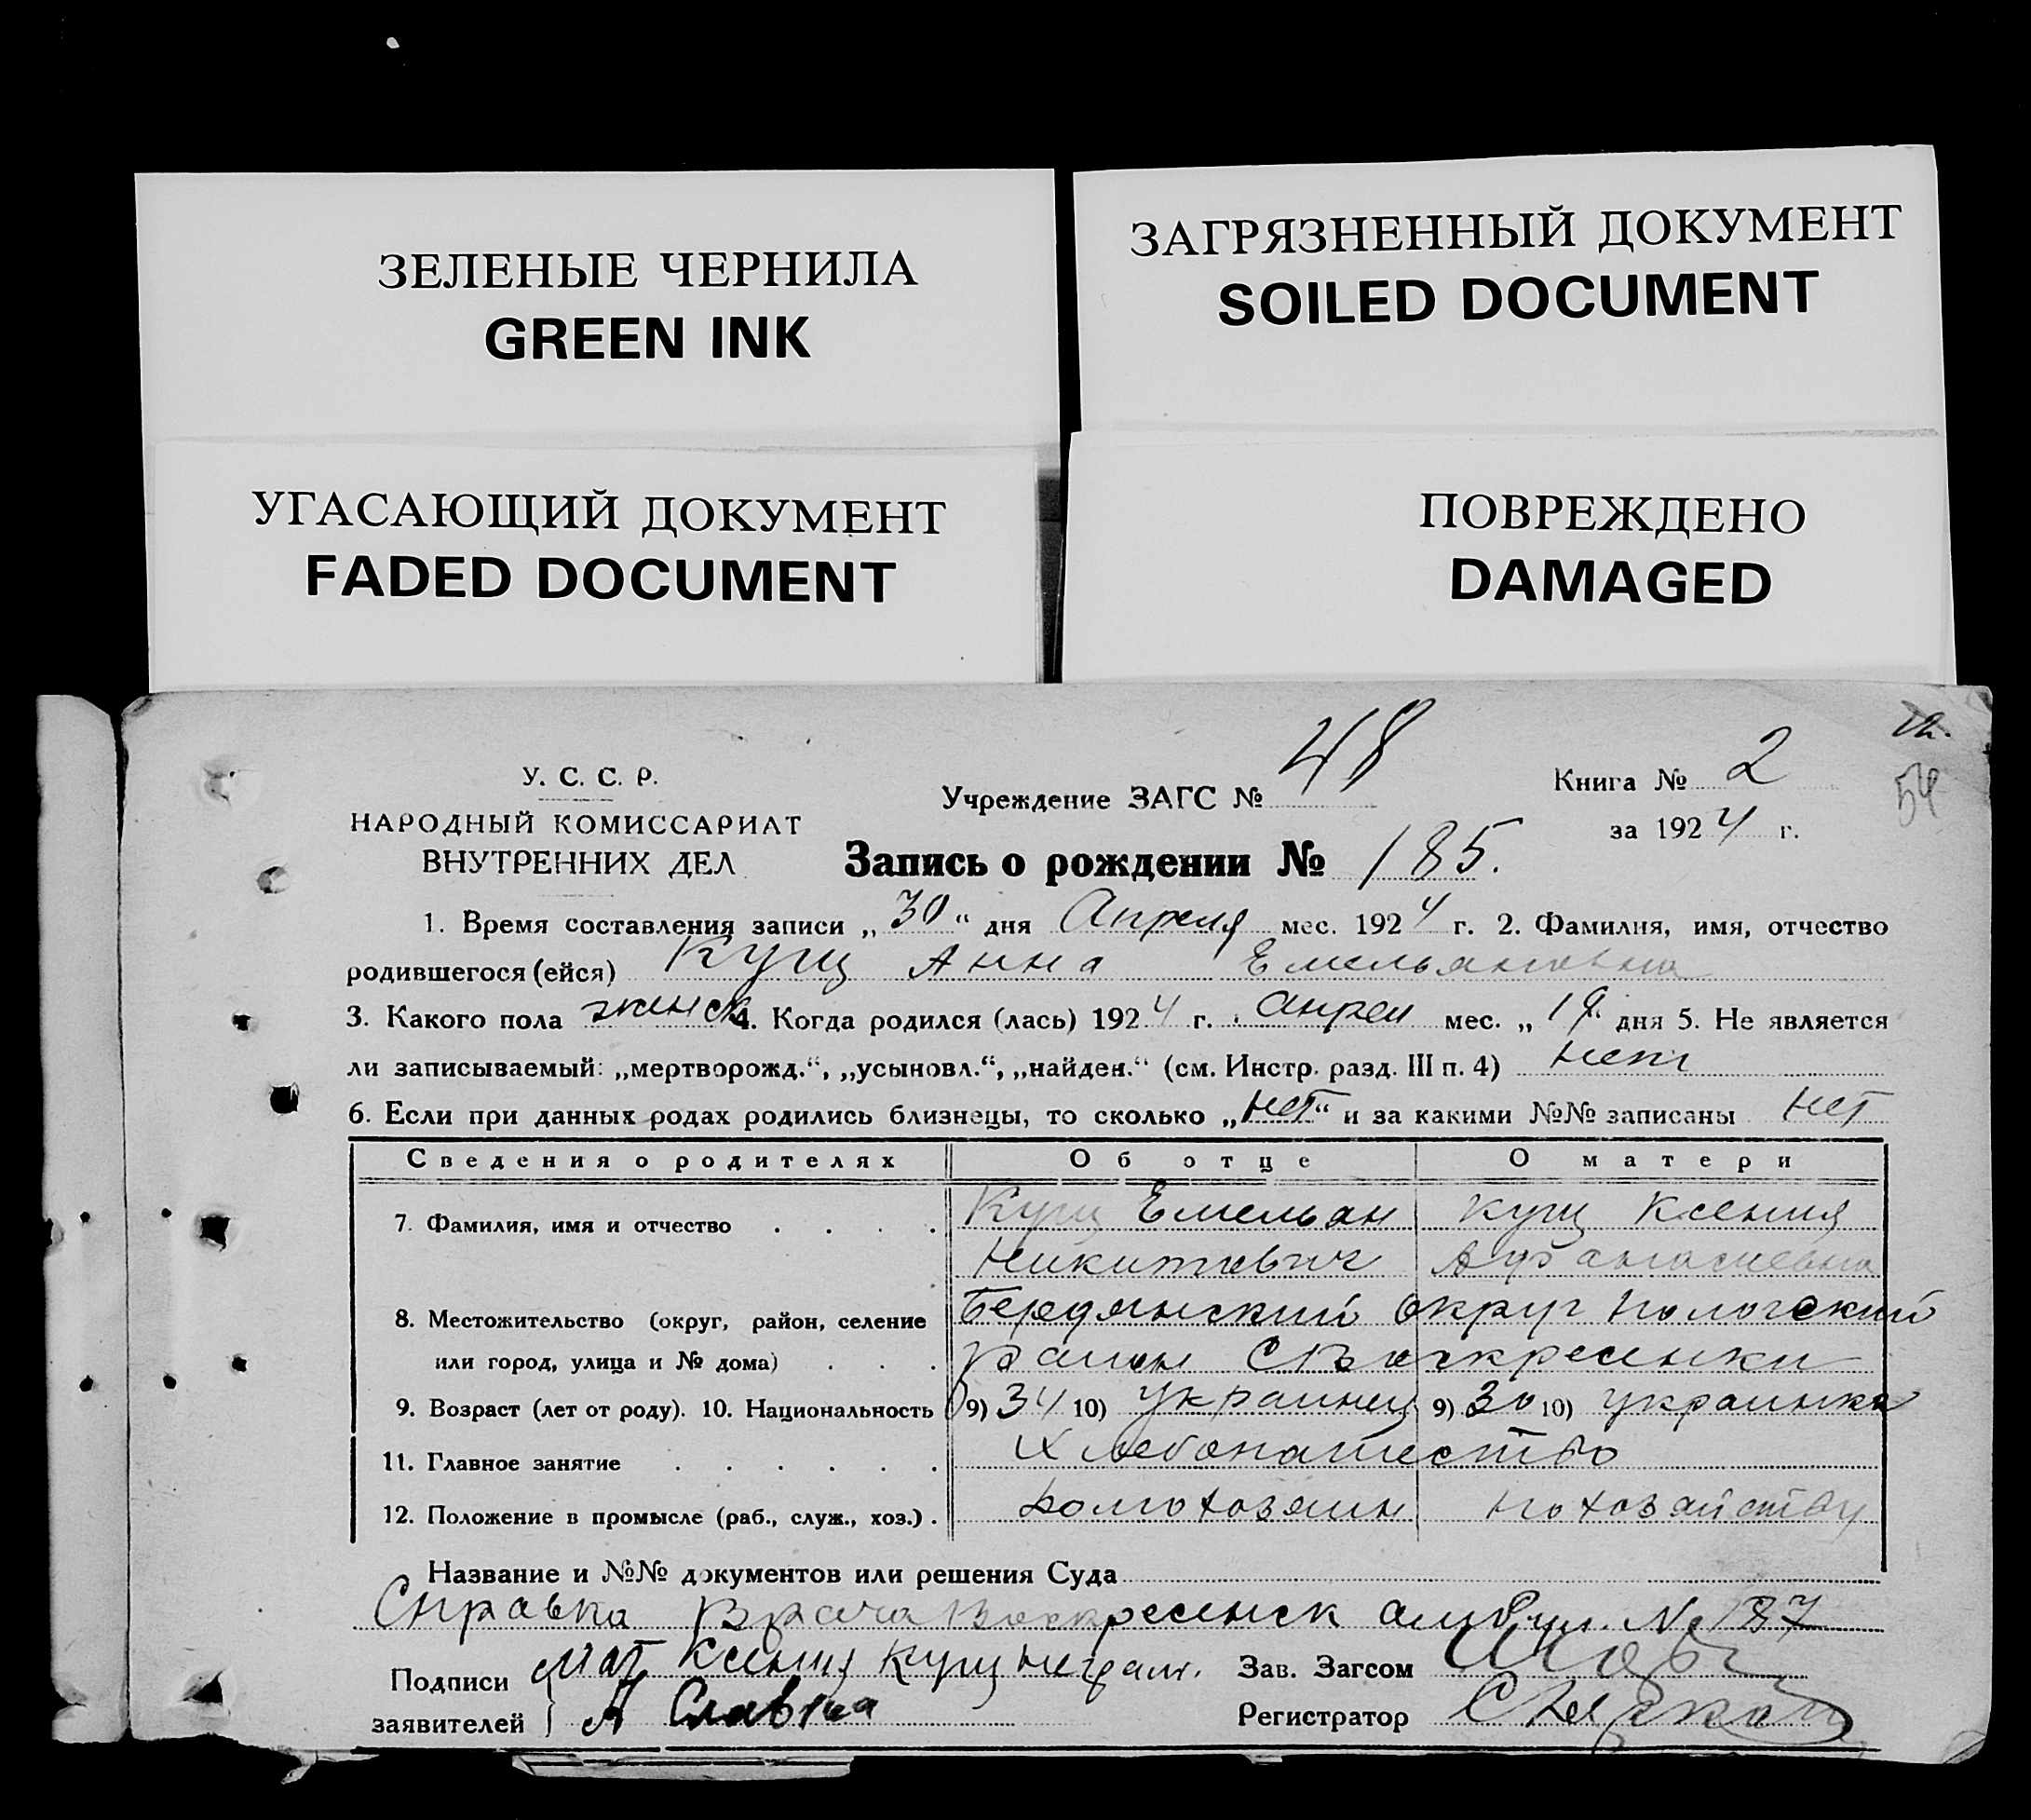 ЗЕЛЕНЫЕ ЧЕРНИЛА
GREEN INK
ЗАГРЯЗНЕННЫЙ ДОКУМЕНТ
SOILED DOCUMENT
УГАСАЮЩИЙ ДОКУМЕНТ
FADED DOCUMENT
ПОВРЕЖДЕНО
DAMAGED
54
У. С. С. Р.
НАРОДНЫЙ КОМИССАРИАТ
ВНУТРЕННИХ ДЕЛ
Учреждение ЗАГС № 48
Книга № 2
за 1924 г.
Запись о рождении № 185.
1. Время составления записи „30“ дня Апреля мес. 1924 г. 2. Фамилия, имя, отчество
родившегося (ейся) Кущ Анна Емельяновна
3. Какого пола женск 4. Когда родился (лась) 1924 г. апрел мес. „19 дня 5. Не является
ли записываемый: „мертворожд.“, „усыновл.“, „найден.“ (см. Инстр. разд. III п. 4) нет
6. Если при данных родах родились близнецы, то сколько „нет“ и за какими №№ записаны нет
Сведения о родителях Об отце О матери
7. Фамилия, имя и отчество Кущ Емельян Кущ Ксения
Никитович Афанасиевна
8. Местожительство (округ, район, селение Бердянский округ Пологский
или город, улица и № дома) район
9. Возраст (лет от роду). 10. Национальность 9) 34 10) Украинец 9) 30 10) украинка
11. Главное занятие Хлебопашество
12. Положение в промысле (раб., служ., хоз.) домохозяин по хозяйству
Название и №№ документов или решения Суда
Справка Врача Воскресенск амбул. № 187
Подписи Мат Ксения Кущ неграм. Зав. Загсом
заявителей А Регистратор